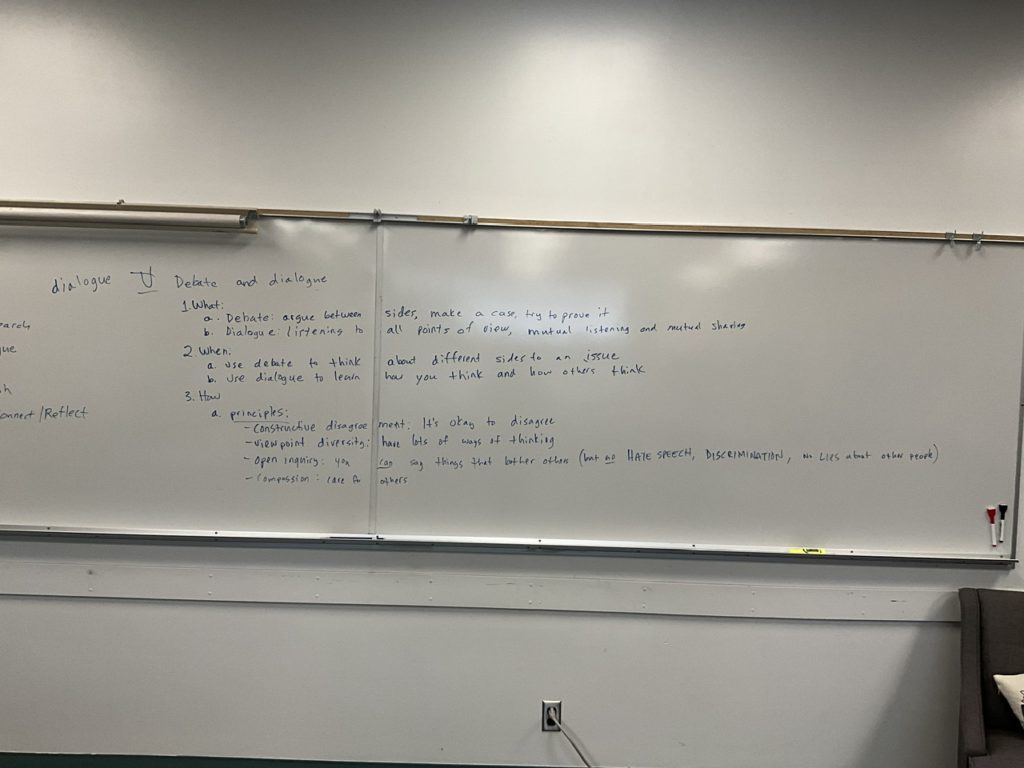 dialogue
V. Debate and dialogue
1. What:
a. Debate: argue between sides, make a case, try to prove it
b. Dialogue: listening to all points of view, mutual listening and mutual sharing
2. When:
a. use debate to think about different sides to an issue
b. use dialogue to learn how you think and how others think
3. How
a. principles:
- Constructive disagreement: It's okay to disagree
- viewpoint diversity: have lots of ways of thinking
- Open inquiry: you can say things that bother others (but no HATE SPEECH, DISCRIMINATION, no LIES about other people)
- Compassion: care for others
/Reflect